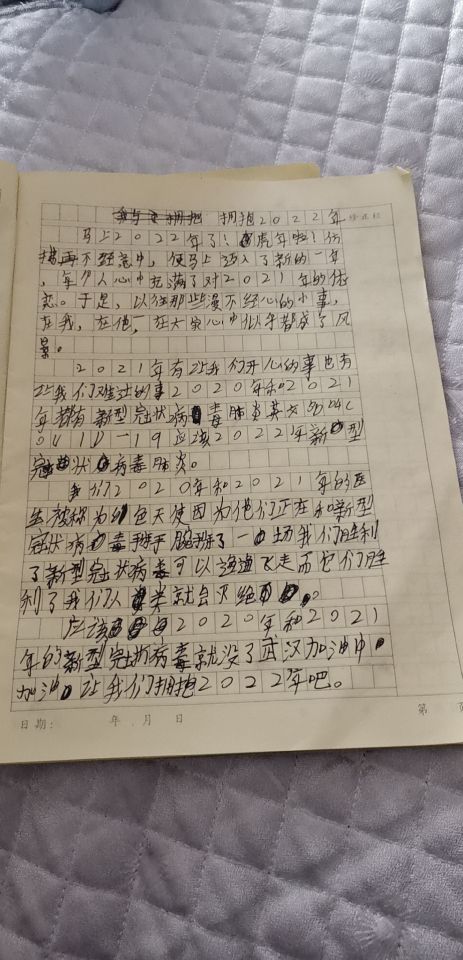 拥抱2022年
马上2022年了！虎年啦！仿
再不经意中，便马上迈入了新的一年
，每个人心中充满了对2021年的依
恋。于是，以往那些漫不经心的小事，
在我，在他，在大家心中似乎都成了风
景。
2021年有让我们开心的事也有
让我们难过的事2020年和2021
年都有新型冠状病毒肺炎
19应该2022年新型
冠状病毒肺炎。
我们2020年和2021年的医
生被称为白色天使因为他们正在和新型
冠状病毒掰手腕掰了一场我们胜利
了新型冠状病毒可以渔渔飞走而它们胜
利了我们人类就会灭绝。
应该2020年和2021
年的新型冠状病毒就没了武汉加油中
加油。让我们拥抱2022年吧。
日期： 年 月 日
第 页